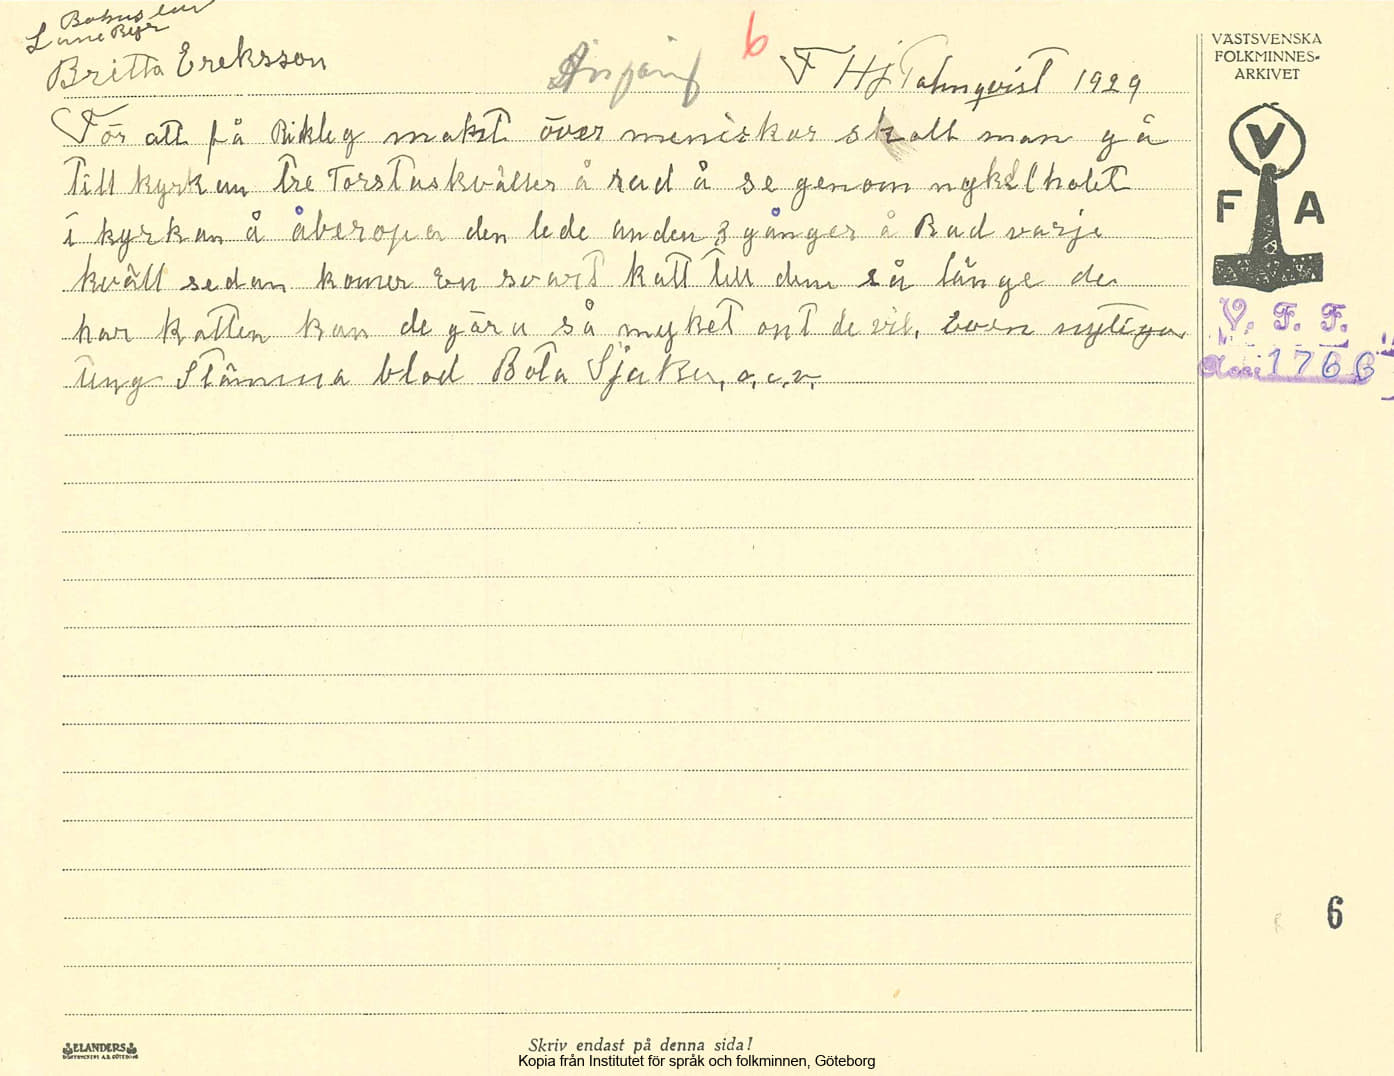 Bohuslän
Lane Ryr
Britta Ereksson
6
F Hj Palmqvist 1929
VÄSTSVENSKA
FOLKMINNES-
ARKIVET
För att få Riklig makt över meniskor skall man gå
till kyrkan tre Torstaskväller å rad å se genom nykelholet
i kyrkan å åberopa den lede anden 3 gånger å Rad varje
kväll sedan komer en svart katt till dem så länge de
har katten kan de göra så myket ont de vil, även nytiga
ting Stämma blod Bota Sjuka, o,c,v,
V
F A
V. F. F.
Acc 1766
6
ELANDERS
Skriv endast på denna sida!
Kopia från Institutet för språk och folkminnen, Göteborg